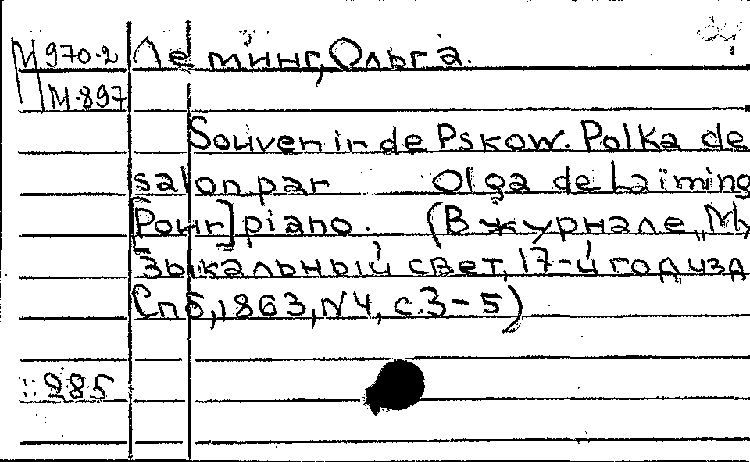 М970-2 Ле минг, Ольга.
М-897
Souvenir de Pskow. Polka de
salon par Olga de Laiming
[Pour] piano. (В журнале „Му
зыкальный свет, 17-й год изд
Спб, 1863, N4, с. 3-5)
285